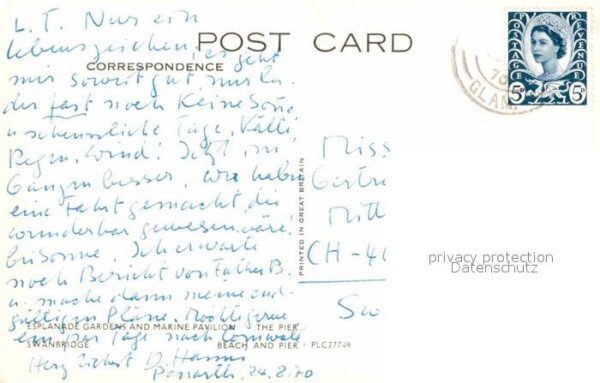 POST CARD
CORRESPONDENCE
L. T. Nur ein
Lebenszeichen, es geht
mir soweit gut, nur lei-
der fast noch keine Sonne
u scheussliche Tage, Kälte,
Regen, Wind! Jetzt im
Ganzen besser, wir haben
eine Fahrt gemacht, die
wunderbar gewesen wäre
bei Sonne. Ich erwarte
noch Bericht von Father B.
u. mache dann meine end-
gültigen Pläne. Möchte gerne
ein paar Tage nach Cornwall
Herzlichst
Penarth, 24.8.70
ESPLANADE GARDENS AND MARINE PAVILION THE PIER
SWANBRIDGE BEACH AND PIER · PLC27749
PRINTED IN GREAT BRITAIN
POSTAGE REVENUE
5D
GLAM
Miss
Gertru
Mitt
CH-40
Sw
privacy protection
Datenschutz